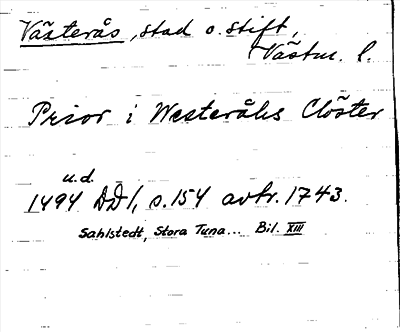 Västerås, stad o. stift,
Västm. l.
Prior i Westeråhs Clöster
u.d.
1494 DD1, s. 154 avtr. 1743.
Sahlstedt, Stora Tuna... Bil. XIII